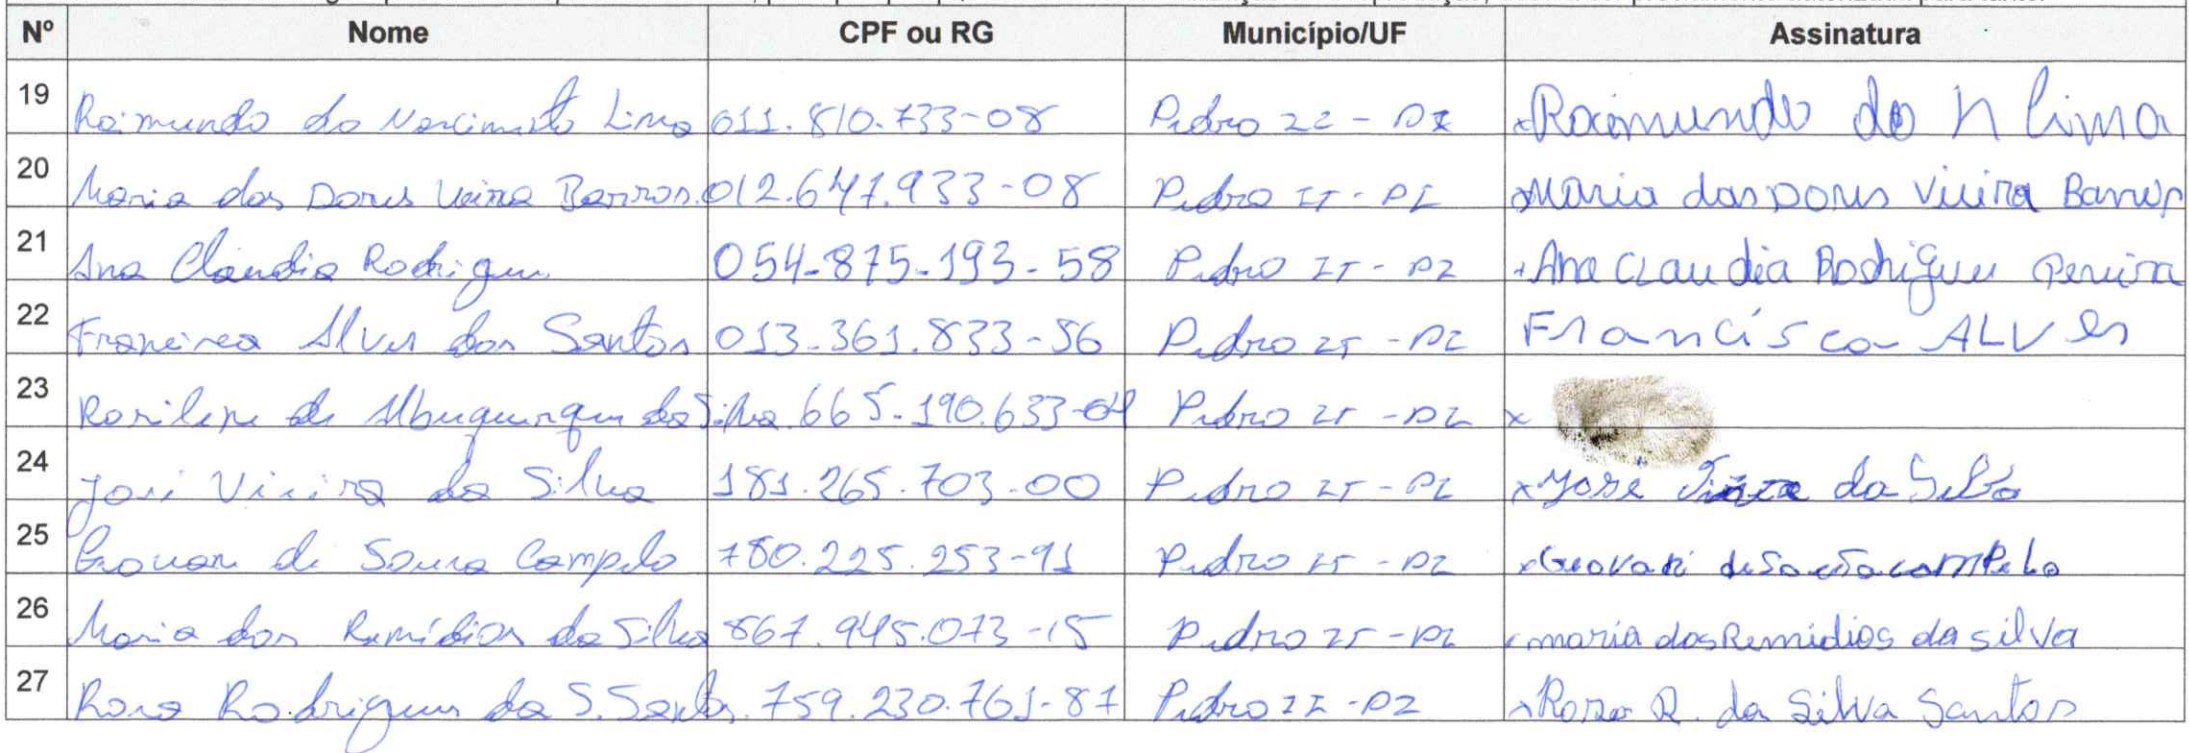 Nº Nome CPF ou RG Município/UF Assinatura
19 Raimundo do Nascimento Lima 011.810.733-08 Pedro II - PI x Raimundo do N lima
20 Maria das Dores Vieira Barros 012.647.933-08 Pedro II - PI x Maria das Dores Vieira Barros
21 Ana Claudia Rodrigues 054-875-193-58 Pedro II - PI x Ana Claudia Rodrigues Pereira
22 Francisca Alves dos Santos 013-361.833-56 Pedro II - PI Francisca ALVes
23 Rosilene de Albuquerque da Silva 665-190.633-04 Pedro II - PI x
24 José Vieira da Silva 181.265.703-00 Pedro II - PI x José Vieira da Silva
25 Geovan de Sousa Campelo 780.225.253-91 Pedro II - PI x Geovani de Sousa comPelo
26 Maria dos Remédios da Silva 867.945.073-15 Pedro II - PI x maria dos Remidios da silva
27 Rosa Rodrigues da S. Santos 759.230.761-87 Pedro II - PI x Rosa R. da Silva Santos